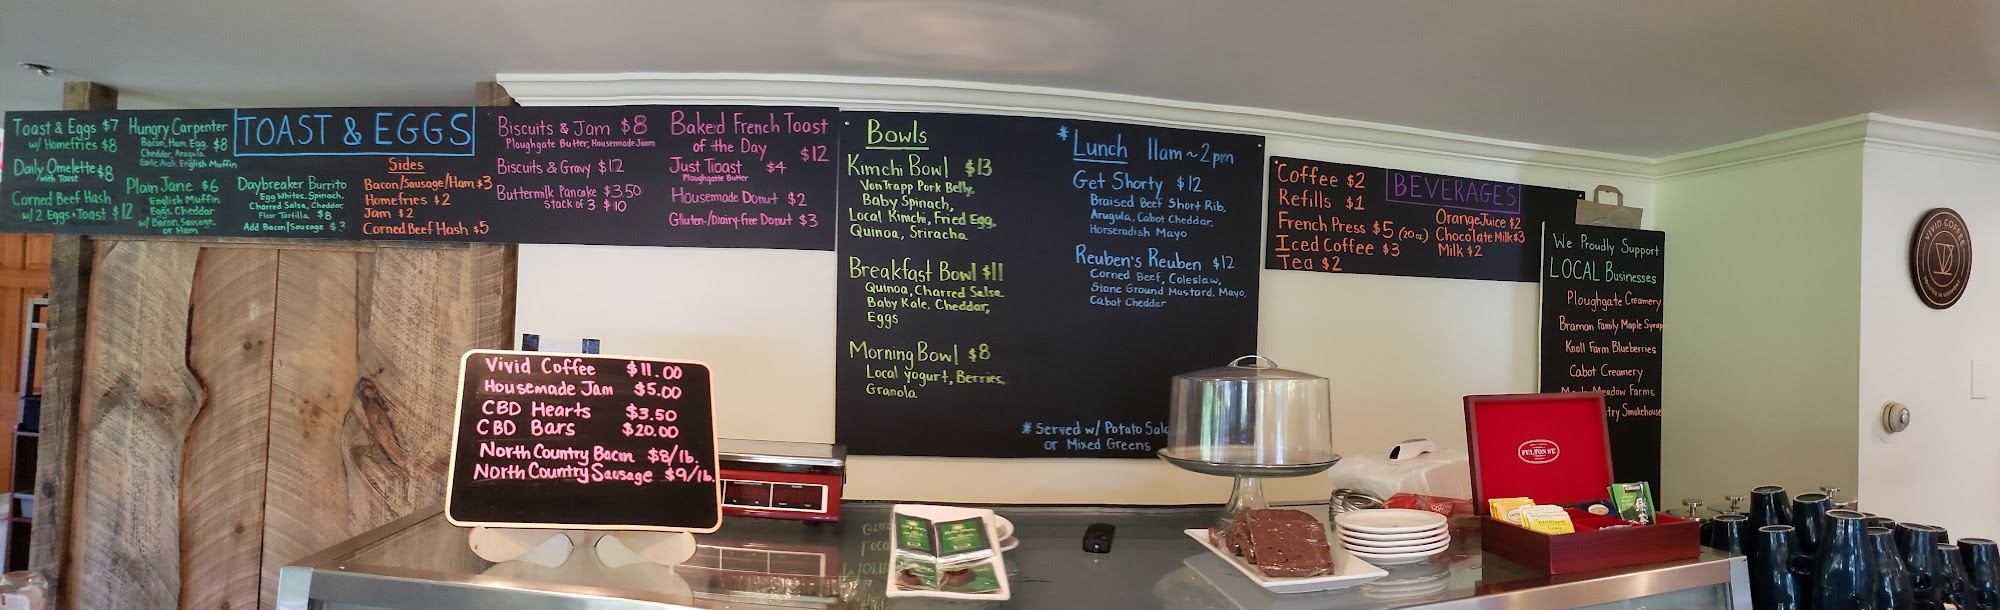 Toast & Eggs $7
w/ Homefries $8
Daily Omelette $8
with Toast
Corned Beef Hash
w/ 2 Eggs + Toast $12
Hungry Carpenter
Bacon, Ham, Egg, $8
Cheddar, Arugula,
Garlic Aioli, English Muffin
Plain Jane $6
English Muffin
Eggs, Cheddar
w/ Bacon, Sausage,
or Ham
TOAST & EGGS
Daybreaker Burrito
Egg Whites, Spinach,
Charred Salsa, Cheddar,
Flour Tortilla $8
Add Bacon/Sausage
Sides
Bacon/Sausage/Ham $3
Homefries $2
Jam $2
Corned Beef Hash $5
Biscuits & Jam $8
Ploughgate Butter, Housemade Jam
Biscuits & Gravy $12
Buttermilk Pancake $3.50
Stack of 3 $10
Baked French Toast
of the Day $12
Just Toast $4
Ploughgate Butter
Housemade Donut $2
Gluten-/Dairy-free Donut $3
Bowls
Kimchi Bowl $13
VonTrapp Pork Belly,
Baby Spinach,
Local Kimchi, Fried Egg,
Quinoa, Sriracha
Breakfast Bowl $11
Quinoa, Charred Salsa
Baby Kale, Cheddar,
Eggs
Morning Bowl $8
Local yogurt, Berries,
Granola
* Lunch 11am ~ 2pm
Get Shorty $12
Braised Beef Short Rib,
Arugula, Cabot Cheddar,
Horseradish Mayo
Reuben's Reuben $12
Corned Beef, Coleslaw,
Stone Ground Mustard, Mayo,
Cabot Cheddar
* Served w/ Potato Sala
or Mixed Greens
BEVERAGES
Coffee $2
Refills $1
French Press $5 (20oz)
Iced Coffee $3
Tea $2
Orange Juice $2
Chocolate Milk $3
Milk $2
We Proudly Support
LOCAL Businesses
Ploughgate Creamery
Braman Family Maple Syrup
Knoll Farm Blueberries
Cabot Creamery
Meadow Farms
try Smokehouse
VIVID COFFEE
Vivid Coffee $11.00
Housemade Jam $5.00
CBD Hearts $3.50
CBD Bars $20.00
North Country Bacon $8/lb.
North Country Sausage $9/lb.
FULTON ST.